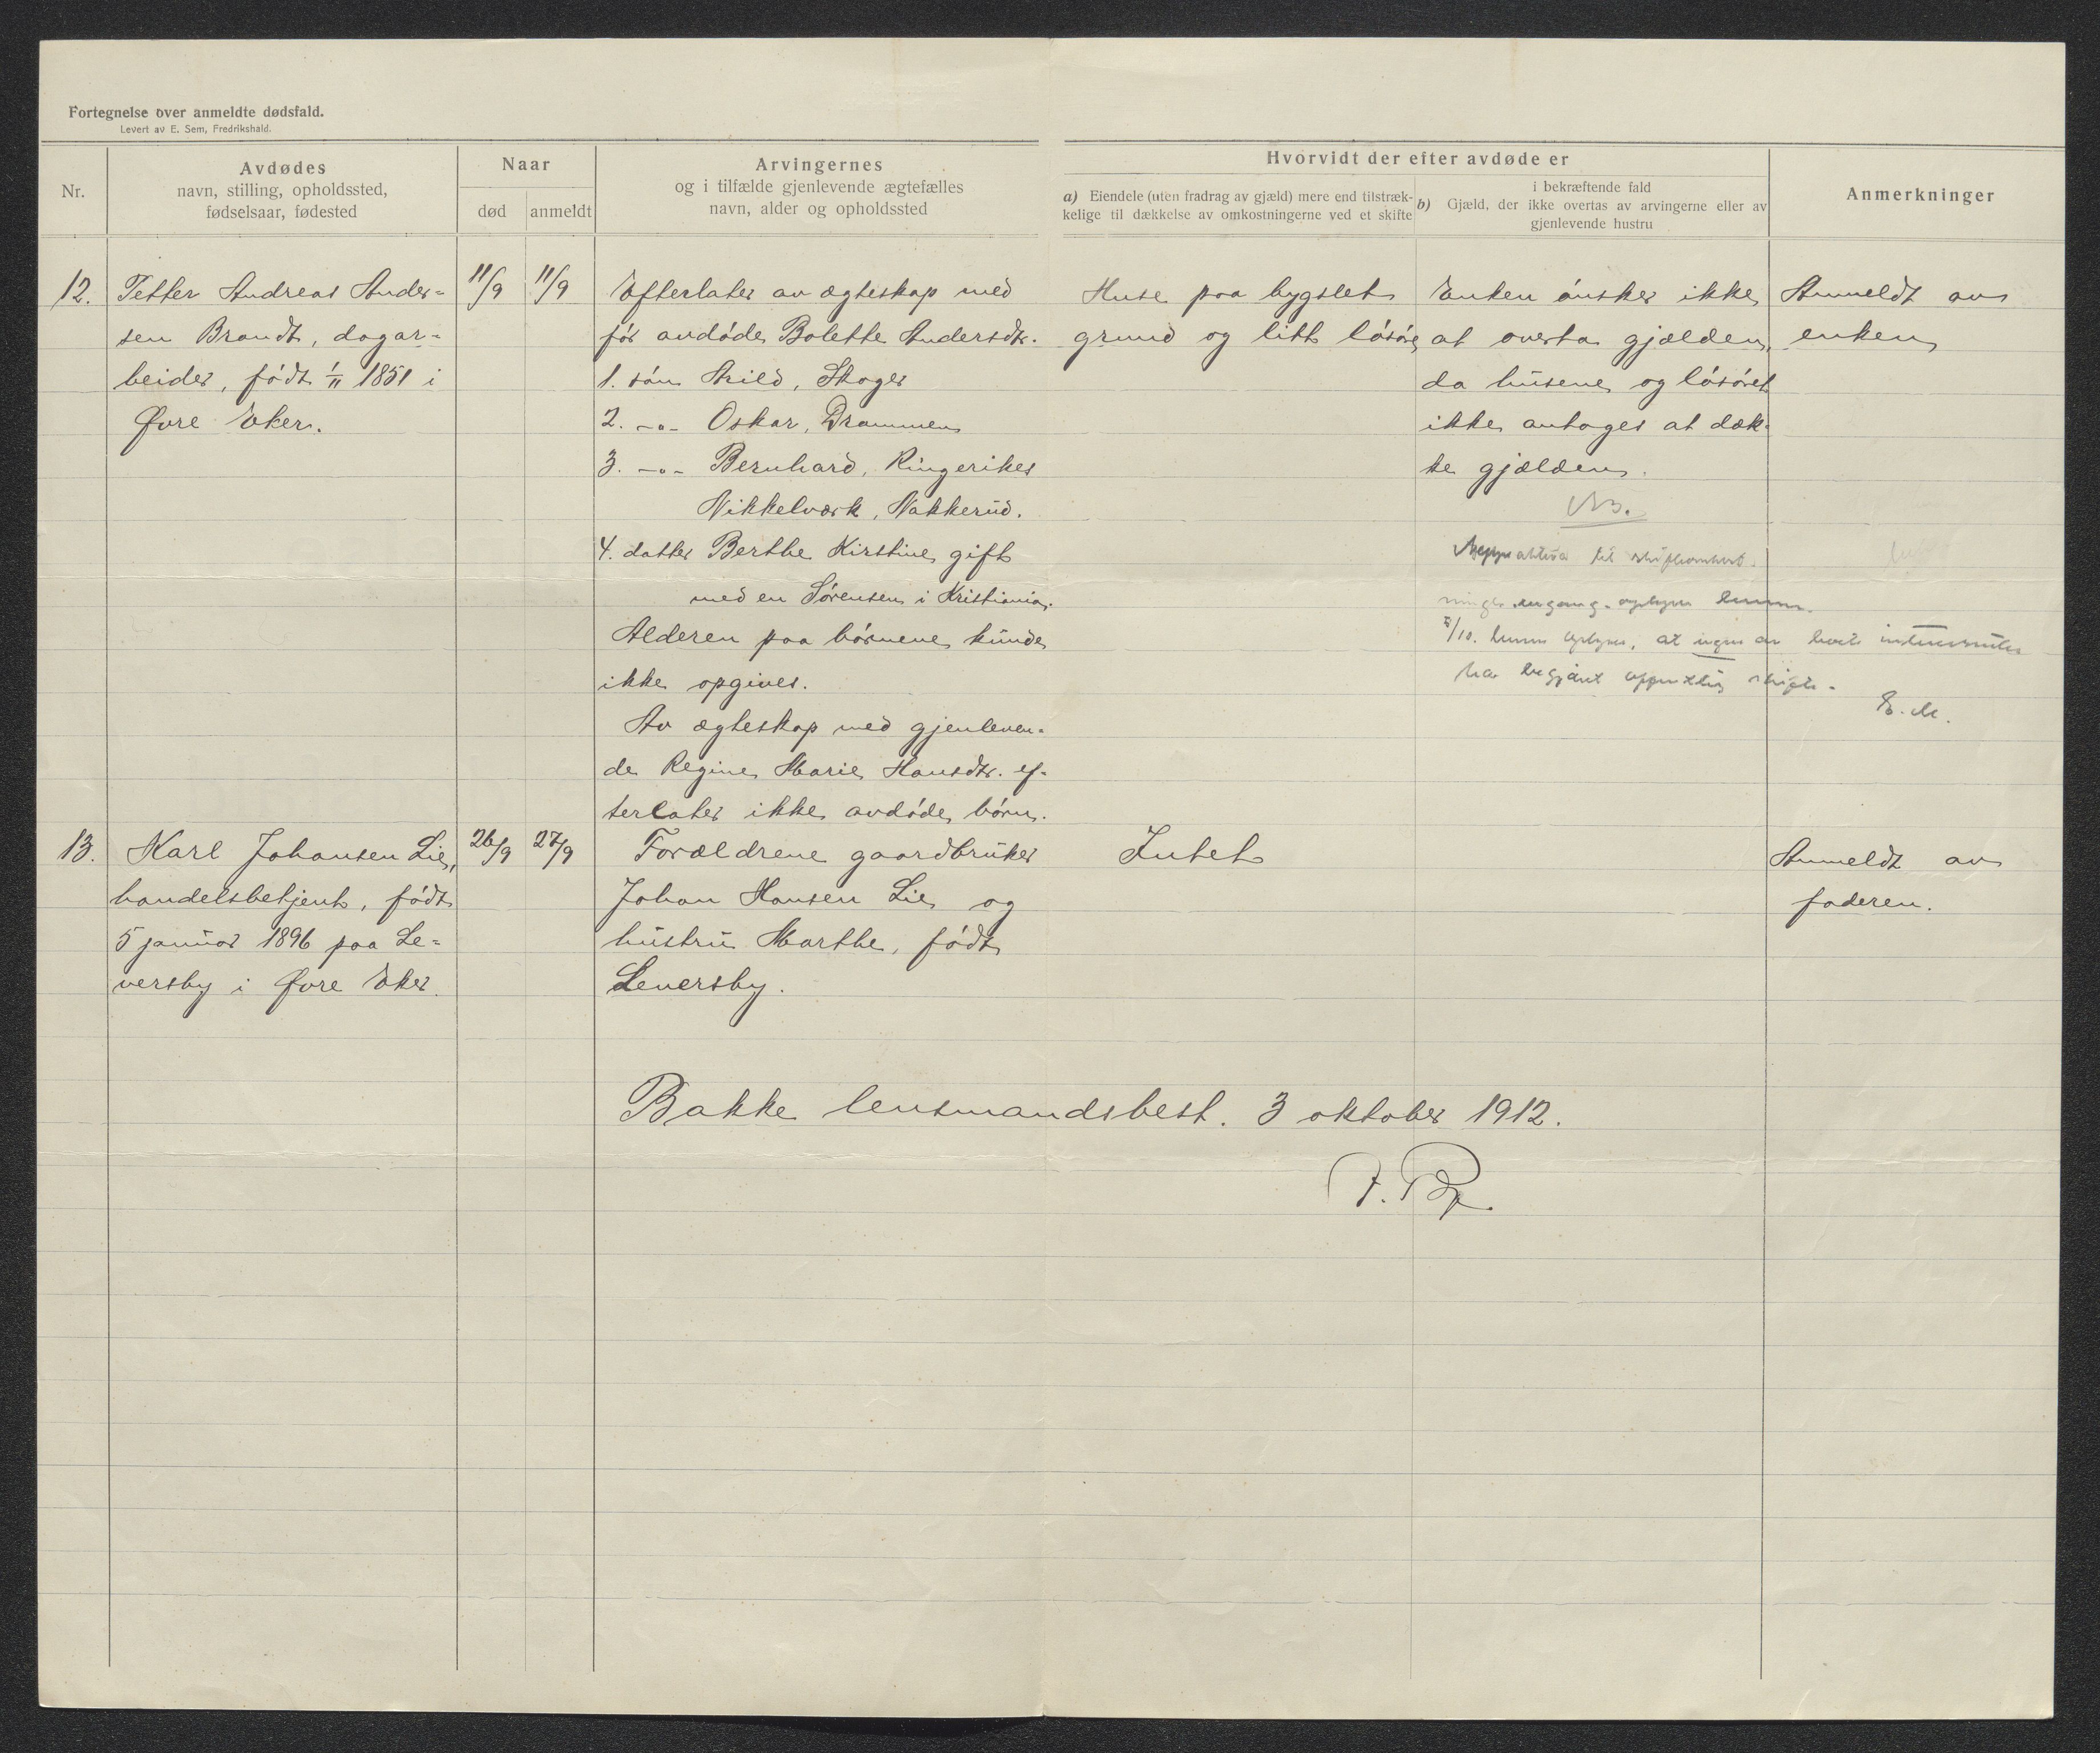 Fortegnelse over anmeldte dødsfald.
Levert av E. Sem, Fredrikshald.
Nr.
Avdødes
navn, stilling, opholdssted,
fødselsaar, fødested
Naar
død
anmeldt
Arvingernes
og i tilfælde gjenlevende ægtefælles
navn, alder og opholdssted
Hvorvidt der efter avdøde er
a) Eiendele (uten fradrag av gjæld) mere end tilstræk-
kelige til dækkelse av omkostningerne ved et skifte
i bekræftende fald
b) Gjæld, der ikke overtas av arvingerne eller av
gjenlevende hustru
Anmerkninger
12.
Petter Andreas Ander-
sen Brandt, dagar-
beider, født 1/11 1851 i
Øvre Eker.
11/9
11/9
Efterlater av ægteskap med
før avdøde Bolette Andersdtr.
1. søn Arild, Skoger
2. -"- Oskar, Drammen
3. -"- Bernhard, Ringerikes
Nikkelværk, Nakkerud.
4. datter Berthe Kirstine gift
med en Sørensen i Kristiania.
Alderen paa børnene kunde
ikke opgives.
Av ægteskap med gjenleven-
de Regine Marie Hansdtr. ef-
terlater ikke avdøde børn.
Huse paa bygslet
grund og litt løsøre
Enken ønsker ikke
at overta gjælden,
da husene og løsøret
ikke antages at dæk-
ke gjælden.
NB.
Neppe aktiva til skifteomkost-
ninger engang
/10. at ingen av
ha begjært offentlig skifte.
E. M.
Anmeldt av
enken
13.
Karl Johansen Lie,
handelsbetjent, født
5 januar 1896 paa Le-
versby i Øvre Eker.
26/9
27/9
Forældrene gaardbruker
Johan Hansen Lie og
hustru Marthe, født
Leversby.
Intet
Anmeldt av
faderen.
Bakke lensmandsbest. 3 oktober 1912.